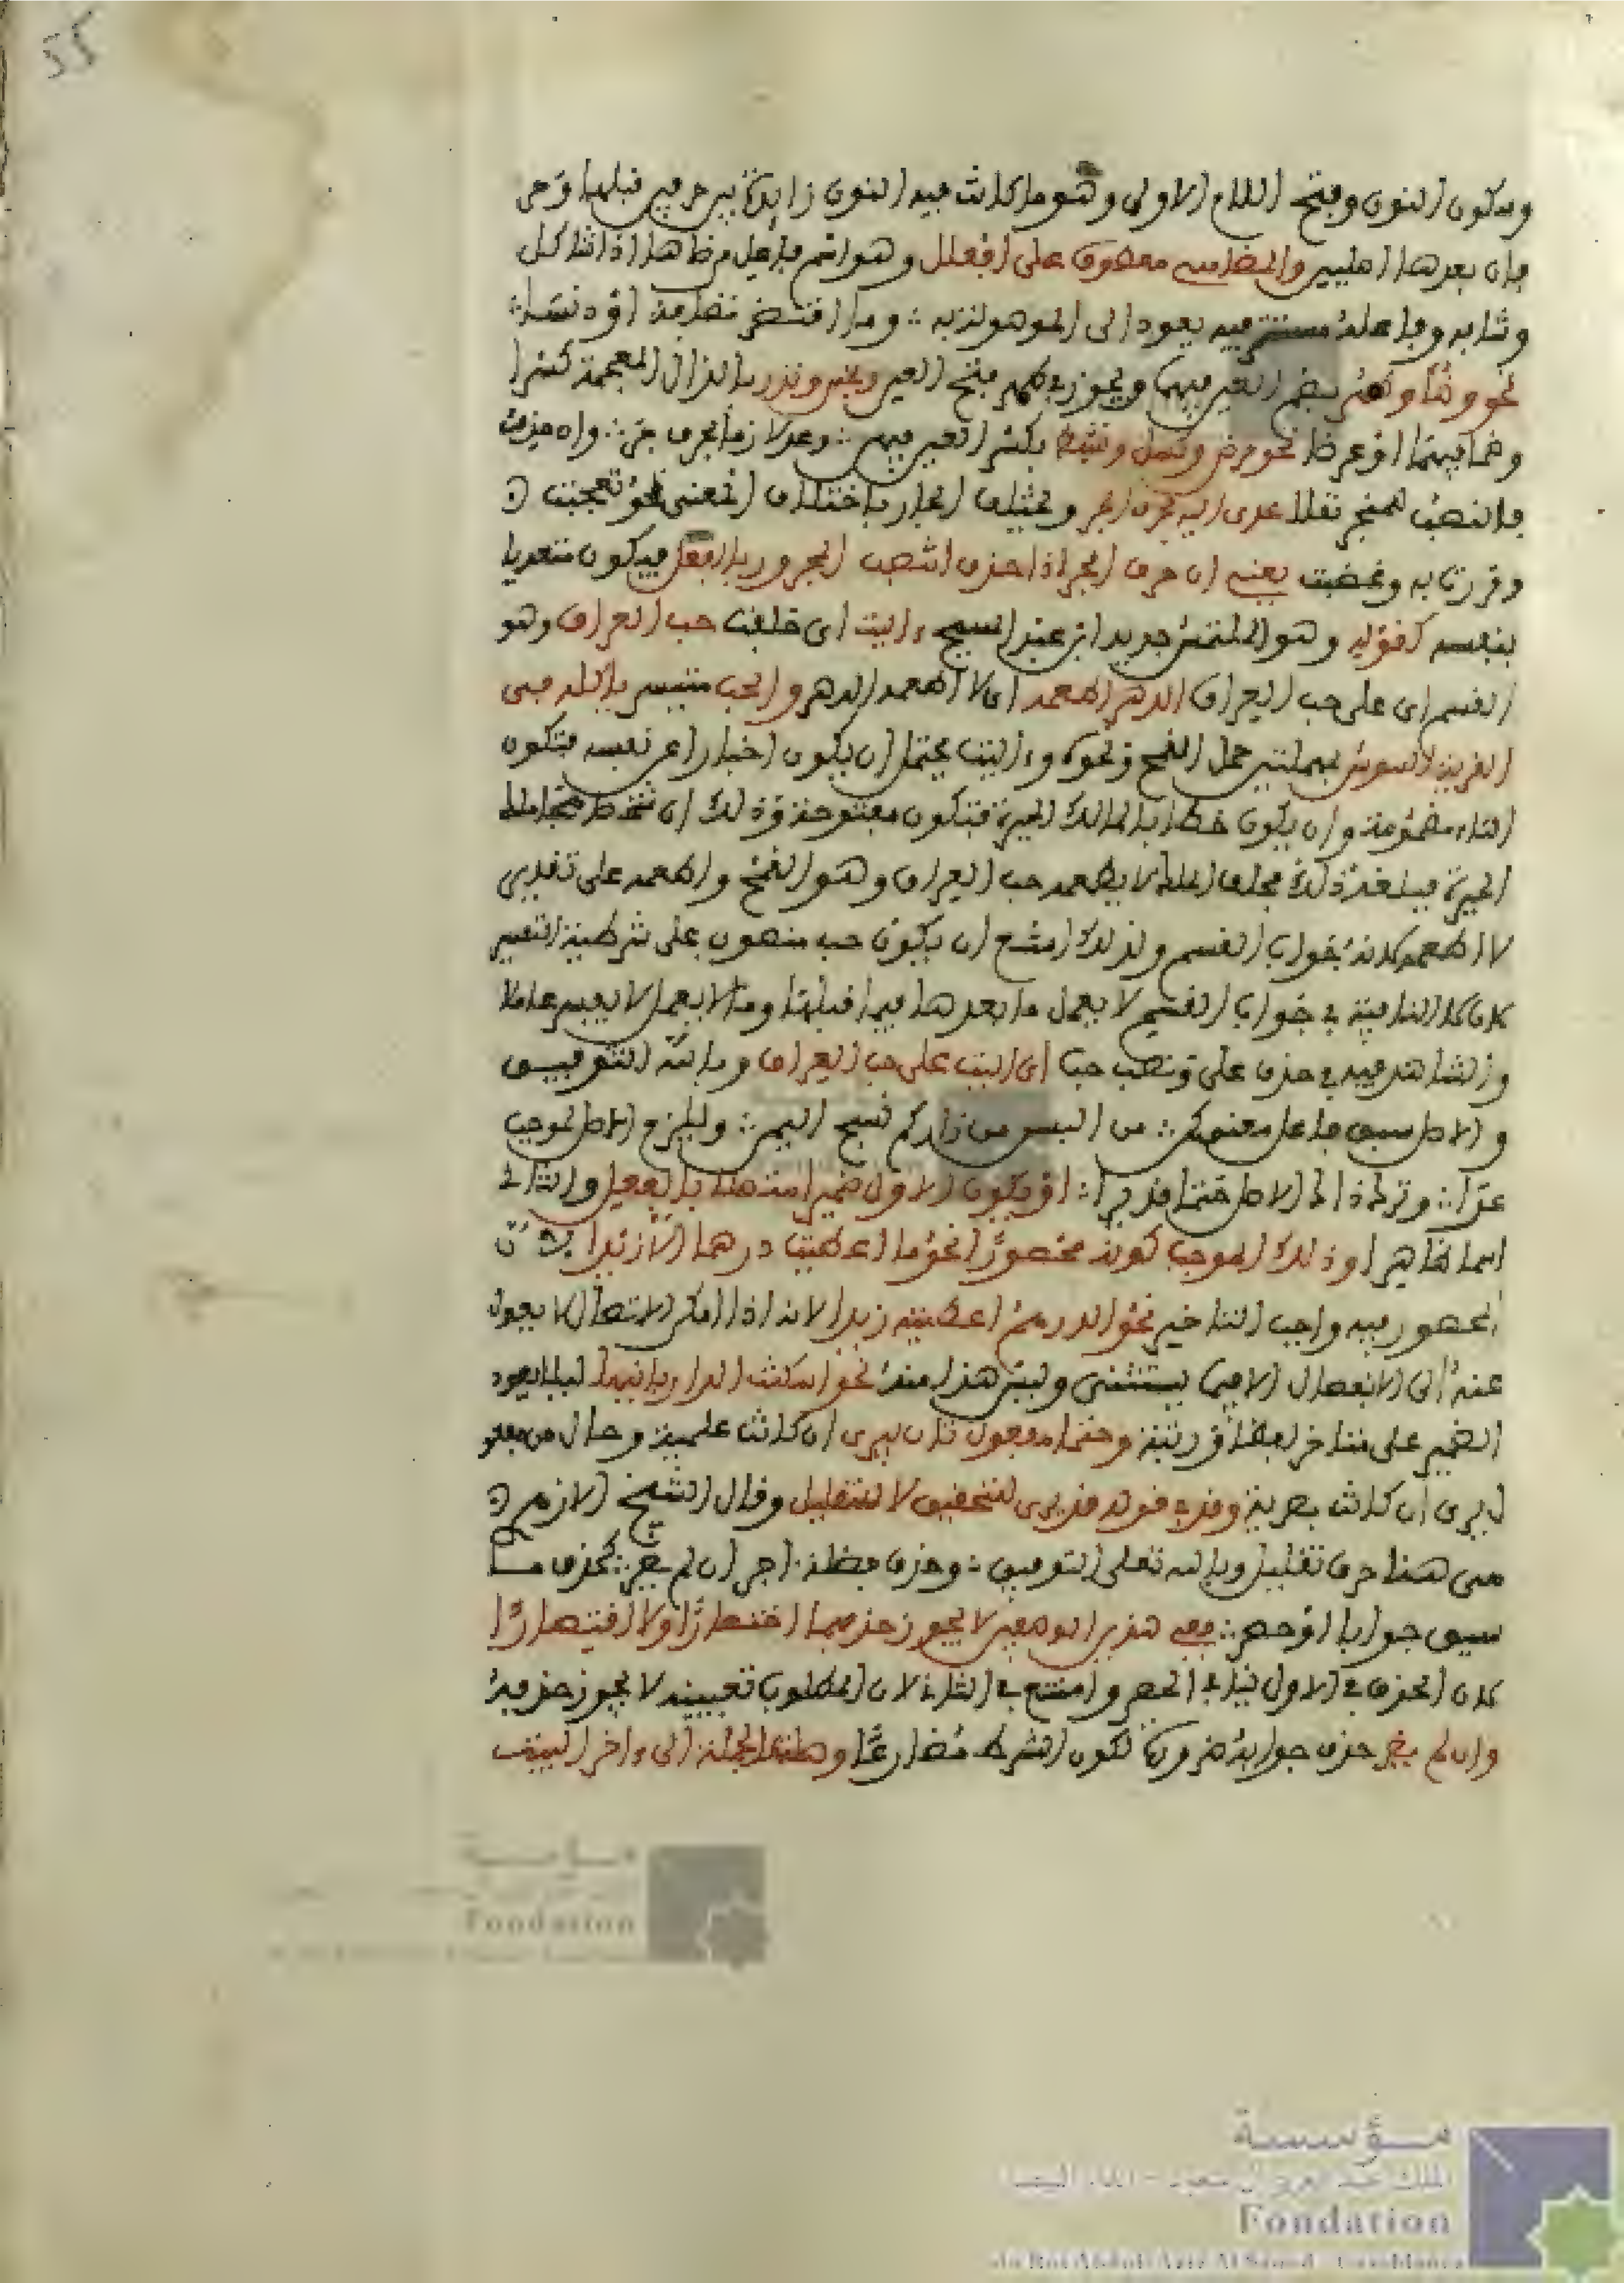 55
وسكون النون وفتح اللام الاولى وهو ما كانت فيه النون زايدة بين حرفين قبلها وحر
فان بعدها اصليين والمضاهي معطوف على افعلل وهو اسم فاعل من ضاهى اذا شاكل
وشابه وفاعله مستتر فيه يعود الى الموصول به وما اقتضى نظافة او دنسا
نحو وضؤ وطهر بضم العين فيهما ويجوز في طهر فتح العين ونجس وقذر بالذال المعجمة كسرا
وضما فيهما او عرضا نحو مرض وكسل ونشط بكسر العين فيهم وعد لازما بحرف جر وان حذف
فالنصب للمنجر نقلا عدى اليه بحرف الجر ويختلف الجار باختلاف المعنى نحو تعجبت
ومررت به وغضبت يعني ان حرف الجر اذا حذف انتصب المجرور بالفعل فيكون متعديا
بنفسه كقوله وهو المتلمس جرير ابن عبد المسيح ءاليت اى حلفت حب العراق وهو
القسم اى على حب العراق الدهر اطعمه اى لا اطعمه الدهر والحب متيسر ياكله فى
القرية السوس بمهملتين حمل القمح ونحوه وءاليت يحتمل ان يكون اخبارا عن نفسه فتكون
التاء مضمومة وان يكون خطابا لمالك الحيرة فتكون مفتوحة وذلك ان
الحيرة فبلغه ذلك فحلف الا يطعمه حب العراق وهو القمح واطعمه على تقدير
لا اطعمه لانه جواب القسم ولذلك امتنع ان يكون حب منصوب على شرطية التفسير
لان لا النافية في جواب القسم لا يعمل ما بعدها فيما قبلها وما لا يعمل لا يفسر عاملا
والشاهد فيه في حذف على ونصب حب اى اليت على حب العراق وبالله التوفيق
والاصل سبق فاعل معنى كمن من البسن من زاركم نسج اليمن ويلزم الاصل لموجب
عرا وترك ذاك الاصل حتما قد يرا او يكون الاول ضميرا متصلا بالفعل والثاني
اسما ظاهرا وذلك الموجب كونه محصورا نحو ما اعطيت درهما الا زيدا لان
المحصور فيه واجب التاخير نحو الدرهم اعطيته زيدا لانه اذا امكن الاتصال لا يعدل
عنه الى الانفصال الا فيما يستثنى وليس هذا منه نحو اسكنت الدار بانيها ليلا يعود
الضمير على متاخر لفظا ورتبة وحتما مفعول ثان ليرى ان كانت علمية وحال من مفعو
ل يرى ان كانت بصرية وقد في قوله قد يرى للتحقيق لا للتقليل وقال الشيخ الازهري
هى هنا حرف تقليل وبالله تعلى التوفيق وحذف فضلة اجز ان لم يضر كحذف ما
سيق جوابا او حصر ففي هذين الموضعين لا يجوز حذفهما اختصارا ولا اقتصارا
لان الحذف في الاول ينافي الحصر وامتنع في الثاني لان المطلوب تعيينه لا يجوز حذفه
وان لم يضر حذف جوابه ضرورة لكون الشرط مضارعا وهذه الجملة الى ءاخر البيت
مؤسسة
الملك عبد العزيز آل سعود - الدار البيضاء
Fondation
du Roi Abdul-Aziz Al Saoud - Casablanca
مؤسسة
Fondation